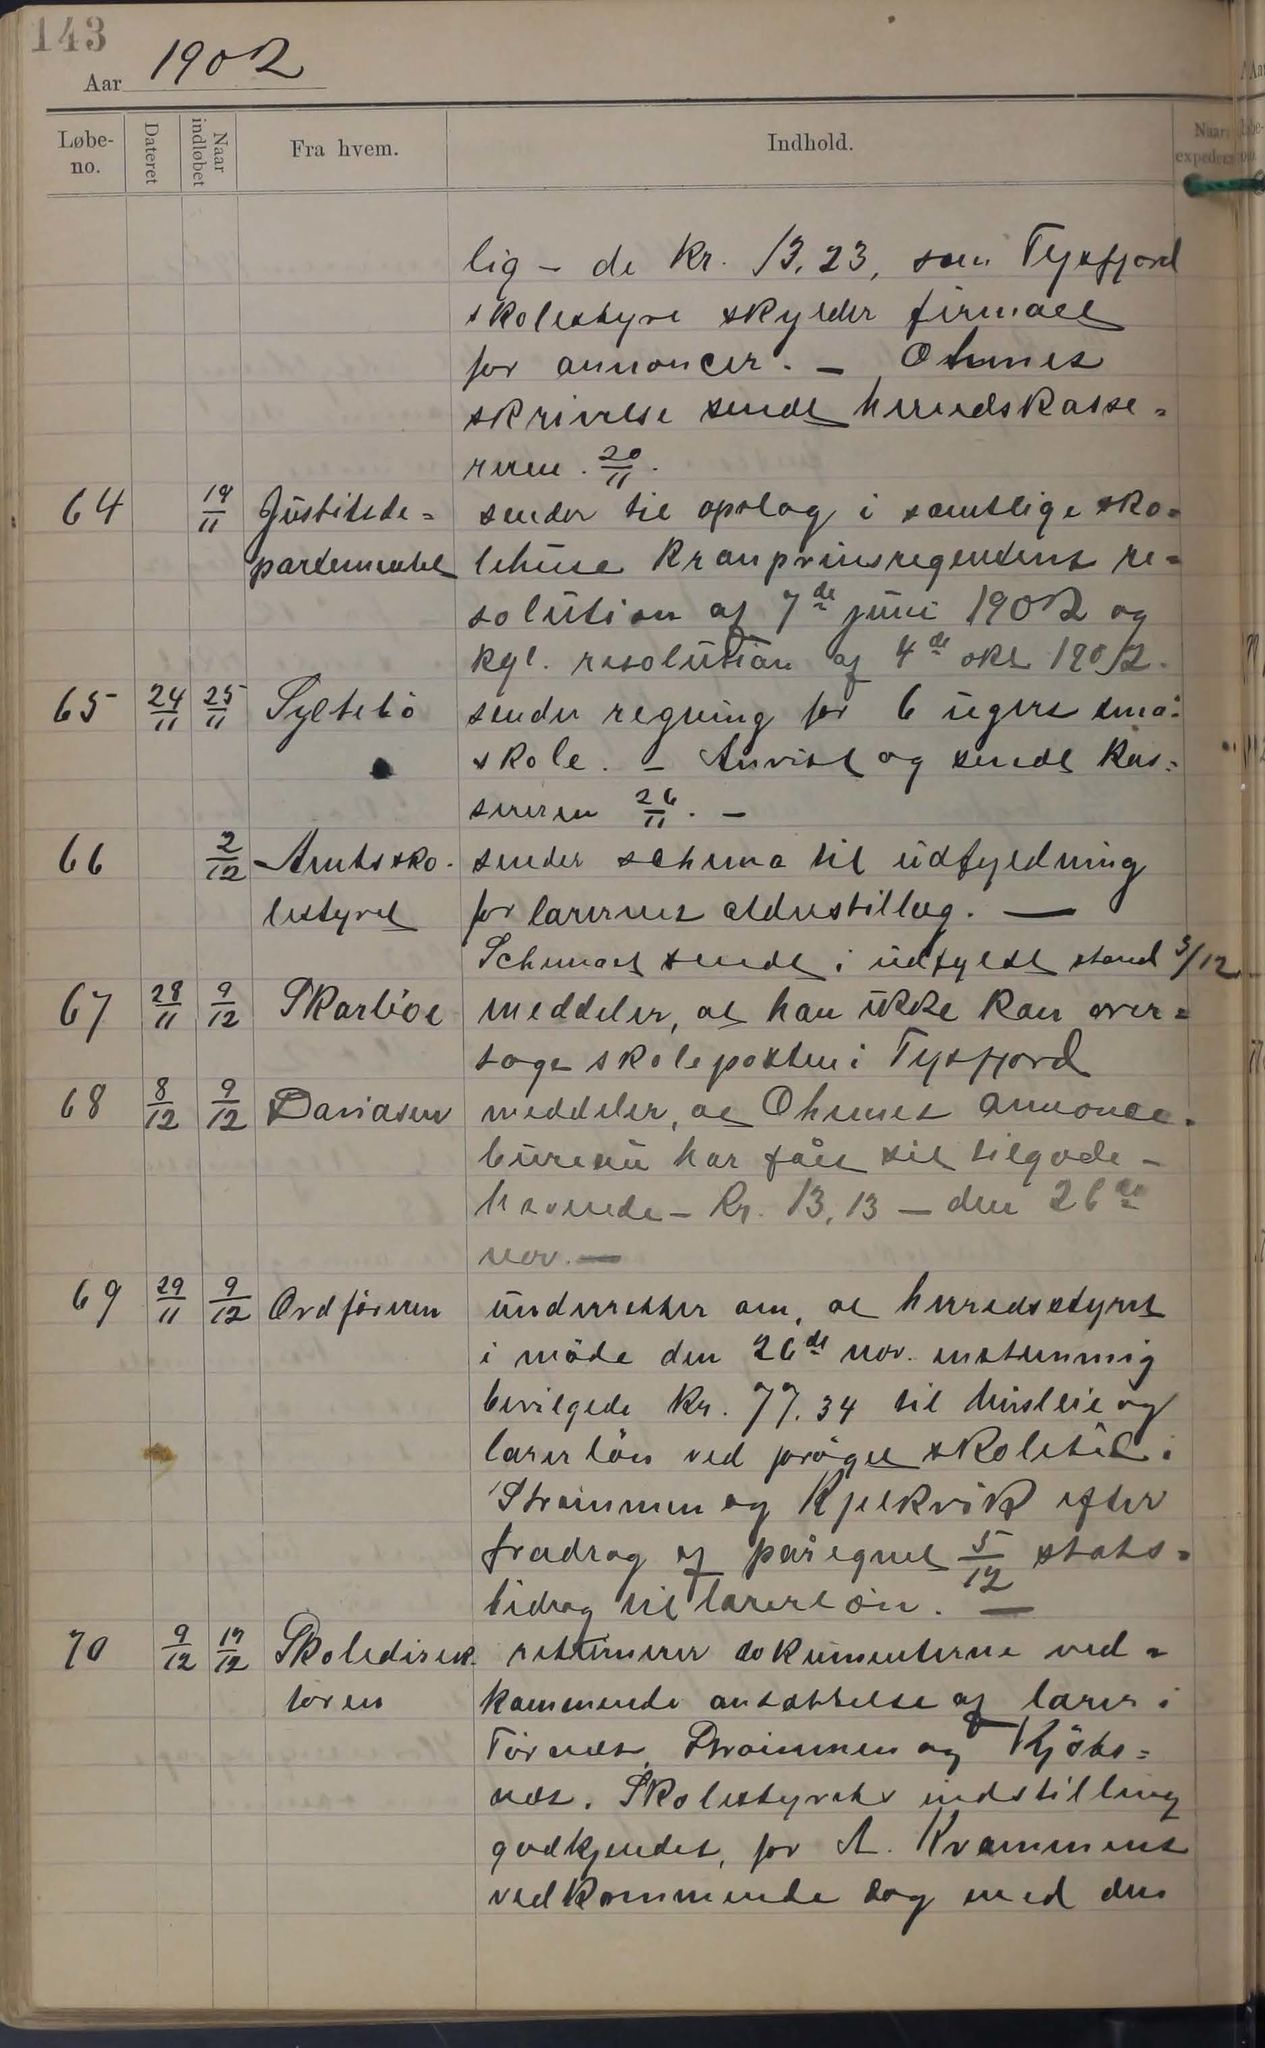 143
Aar 1902
Løbe-no. Dateret Naar indløbet Fra hvem. Indhold. Naar expedere
lig - de kr. 13,23, som Tysfjord
skolestyre skylder firmaet
for annoncer. - Ohmes
skrivelse sendt herredskasse-
reren. 20/11.
64 19/11 Justitsde- sender til opslag i samtlige sko-
partementet lehuse Kronprinsregentens re-
solution af 7de juni 1902 og
kgl. resolution af 4de okt 1902.
65 24/11 25/11 Syltebö sender regning for 6 ugers små-
skole. - Anvist og sendt kas-
sereren 26/11. -
66 2/12 Amtssko- sender schema til udfyldning
lestyret for lærernes alderstillæg. -
Schemaet sendt i udfyldt stand 3/12
67 28/11 9/12 meddeler, at han ikke kan over-
tage skoleposten i Tysfjord
68 8/12 9/12 Davidsen meddeler, at Ohmes annonce-
bureau har fått sit tilgode-
havende - Kr. 13,13 - den 26de
nov. -
69 29/11 9/12 Ordføreren underretter om, at herredsstyret
i møde den 26de nov. enstemmig
bevilgede kr. 77.34 til husleie og
lærerlön ved forøget skoletid i
Strømmen og Kjelkvik efter
fradrag af påregnet 5/12 stats-
bidrag til lærerløn. -
70 9/12 17/12 Skoledirek- returnerer dokumenterne ved-
tøren kommende ansættelse af lærer i
Strømmen og Kjöbs-
næs. Skolestyrets indstilling
godkjendes, for A. Kvammens
vedkommende dog med den